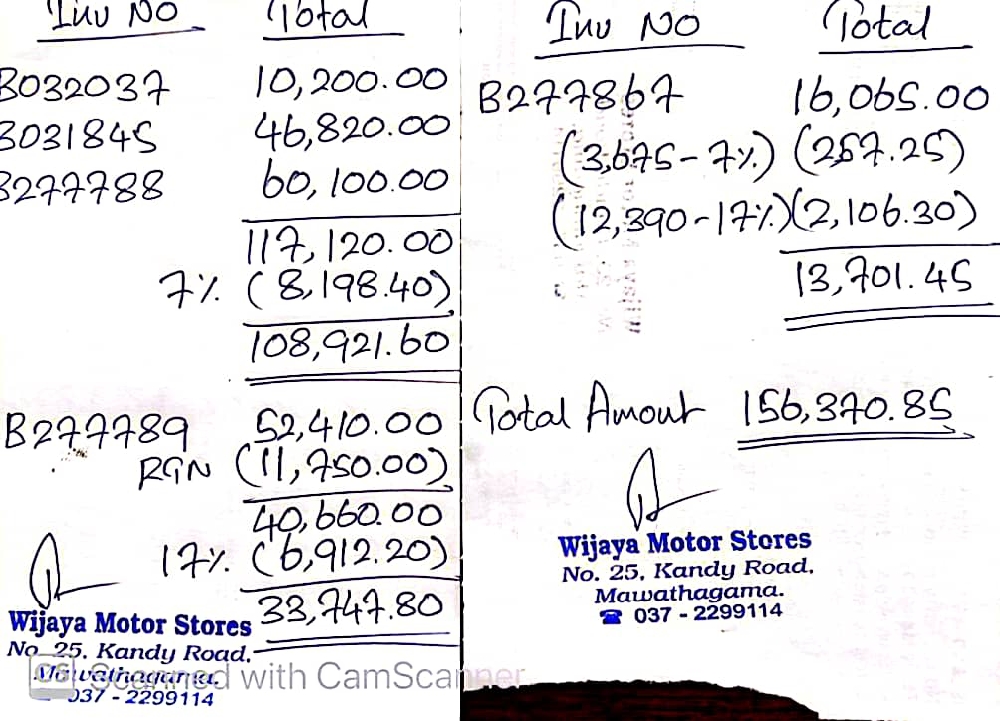 Inv NO Total
B032037 10,200.00
B031845 46,820.00
B277788 60,100.00
117,120.00
7% (8,198.40)
108,921.60
B277789 52,410.00
RGN (11,750.00)
40,660.00
17% (6,912.20)
33,747.80
Wijaya Motor Stores
No. 25, Kandy Road,
Mawathagama.
037 - 2299114
CS Scanned with CamScanner
Inv NO Total
B277867 16,065.00
(3,675-7%) (257.25)
(12,390-17%) (2,106.30)
13,701.45
Total Amout 156,370.85
Wijaya Motor Stores
No. 25, Kandy Road,
Mawathagama.
☎ 037 - 2299114